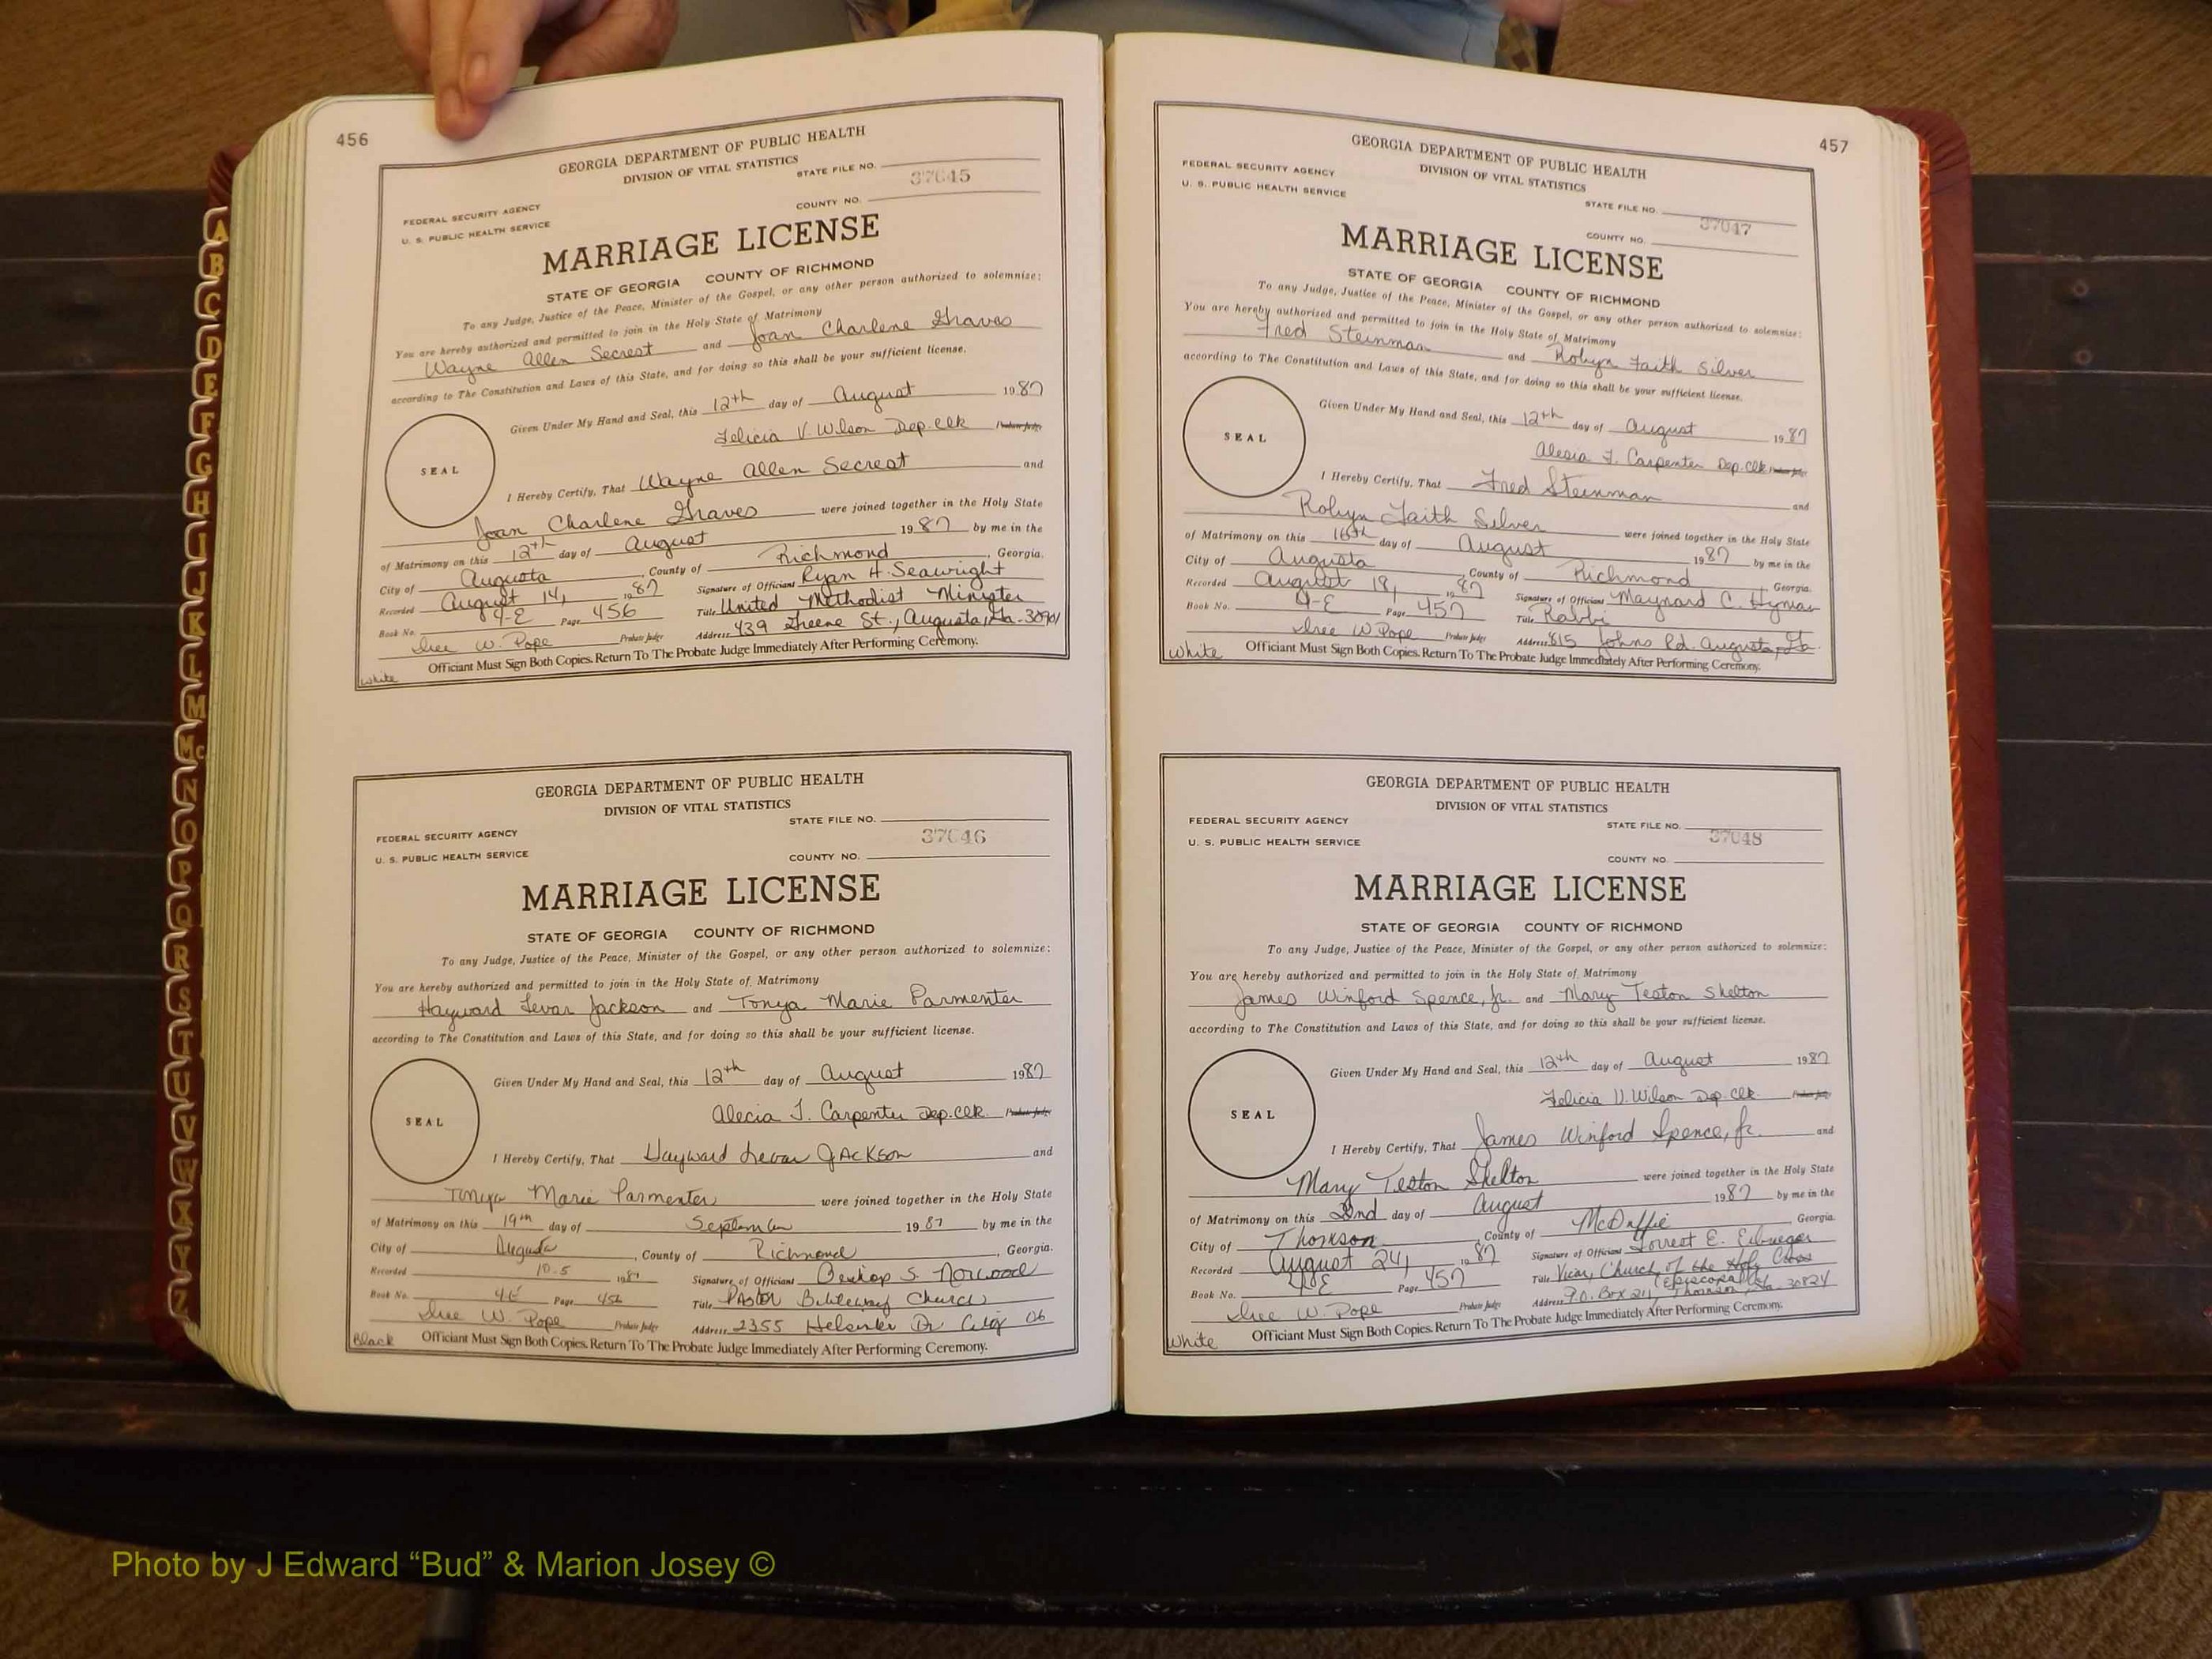 456
GEORGIA DEPARTMENT OF PUBLIC HEALTH
DIVISION OF VITAL STATISTICS
STATE FILE NO.
37645
FEDERAL SECURITY AGENCY
U. S. PUBLIC HEALTH SERVICE
COUNTY NO.
MARRIAGE LICENSE
STATE OF GEORGIA COUNTY OF RICHMOND
To any Judge, Justice of the Peace, Minister of the Gospel, or any other person authorized to solemnize:
You are hereby authorized and permitted to join in the Holy State of Matrimony
Wayne Allen Secrest and Joan Charlene Graves
according to The Constitution and Laws of this State, and for doing so this shall be your sufficient license.
Given Under My Hand and Seal, this 12th day of August 1987
Felicia V. Wilson Dep. Clk Probate Judge
SEAL
I Hereby Certify, That Wayne Allen Secrest and
Joan Charlene Graves were joined together in the Holy State
of Matrimony on this 12th day of August 1987 by me in the
City of Augusta, County of Richmond, Georgia.
Recorded August 14, 1987 Signature of Officiant Ryan H. Seawright
Book No. 4-E Page 456 Title United Methodist Minister
W. Pope Probate Judge Address 439 Greene St., Augusta, Ga. 30901
Officiant Must Sign Both Copies. Return To The Probate Judge Immediately After Performing Ceremony.
White
GEORGIA DEPARTMENT OF PUBLIC HEALTH
DIVISION OF VITAL STATISTICS
STATE FILE NO.
37646
FEDERAL SECURITY AGENCY
U. S. PUBLIC HEALTH SERVICE
COUNTY NO.
MARRIAGE LICENSE
STATE OF GEORGIA COUNTY OF RICHMOND
To any Judge, Justice of the Peace, Minister of the Gospel, or any other person authorized to solemnize:
You are hereby authorized and permitted to join in the Holy State of Matrimony
Hayward Levar Jackson and Tonya Marie Parmenter
according to The Constitution and Laws of this State, and for doing so this shall be your sufficient license.
Given Under My Hand and Seal, this 12th day of August 1987
Alecia J. Carpenter Dep. Clk. Probate Judge
SEAL
I Hereby Certify, That Hayward Levar Jackson and
Tonya Marie Parmenter were joined together in the Holy State
of Matrimony on this 19th day of September 1987 by me in the
City of Augusta, County of Richmond, Georgia.
Recorded 10-5 1987 Signature of Officiant Bishop S. Norwood
Book No. 4E Page 456 Title Pastor Bibleway Church
W. Pope Probate Judge Address 2355 Helsinki Dr Aug 06
Black Officiant Must Sign Both Copies. Return To The Probate Judge Immediately After Performing Ceremony.
457
GEORGIA DEPARTMENT OF PUBLIC HEALTH
DIVISION OF VITAL STATISTICS
FEDERAL SECURITY AGENCY
U. S. PUBLIC HEALTH SERVICE
STATE FILE NO.
37047
COUNTY NO.
MARRIAGE LICENSE
STATE OF GEORGIA COUNTY OF RICHMOND
To any Judge, Justice of the Peace, Minister of the Gospel, or any other person authorized to solemnize:
You are hereby authorized and permitted to join in the Holy State of Matrimony
Fred Steinman and Robyn Faith Silver
according to The Constitution and Laws of this State, and for doing so this shall be your sufficient license.
Given Under My Hand and Seal, this 12th day of August 1987
Alecia J. Carpenter Dep. Clk Probate Judge
SEAL
I Hereby Certify, That Fred Steinman and
Robyn Faith Silver were joined together in the Holy State
of Matrimony on this 16th day of August 1987 by me in the
City of Augusta, County of Richmond Georgia.
Recorded August 18, 1987 Signature of Officiant Maynard C. Hyman
Book No. 4-E Page 457 Title Rabbi
W. Pope Probate Judge Address 815 Johns Rd. Augusta, Ga.
White Officiant Must Sign Both Copies. Return To The Probate Judge Immediately After Performing Ceremony.
GEORGIA DEPARTMENT OF PUBLIC HEALTH
DIVISION OF VITAL STATISTICS
FEDERAL SECURITY AGENCY
U. S. PUBLIC HEALTH SERVICE
STATE FILE NO.
37048
COUNTY NO.
MARRIAGE LICENSE
STATE OF GEORGIA COUNTY OF RICHMOND
To any Judge, Justice of the Peace, Minister of the Gospel, or any other person authorized to solemnize:
You are hereby authorized and permitted to join in the Holy State of Matrimony
James Winford Spence, Jr. and Mary Teston Shelton
according to The Constitution and Laws of this State, and for doing so this shall be your sufficient license.
Given Under My Hand and Seal, this 12th day of August 1987
Felicia V. Wilson Dep. Clk Probate Judge
SEAL
I Hereby Certify, That James Winford Spence, Jr. and
Mary Teston Shelton were joined together in the Holy State
of Matrimony on this 22nd day of August 1987 by me in the
City of Thomson, County of McDuffie Georgia.
Recorded August 24, 1987 Signature of Officiant Forrest E.
Book No. 4-E Page 457 Title Vicar, Church of the Holy Cross
(Episcopal)
W. Pope Probate Judge Address P.O. Box 211, Thomson, Ga. 30824
White Officiant Must Sign Both Copies. Return To The Probate Judge Immediately After Performing Ceremony.
A
B
C
D
E
F
G
H
I
J
K
L
M
Mc
N
O
P
Q
R
S
T
U
V
W
X
Y
Z
Photo by J Edward “Bud” & Marion Josey ©